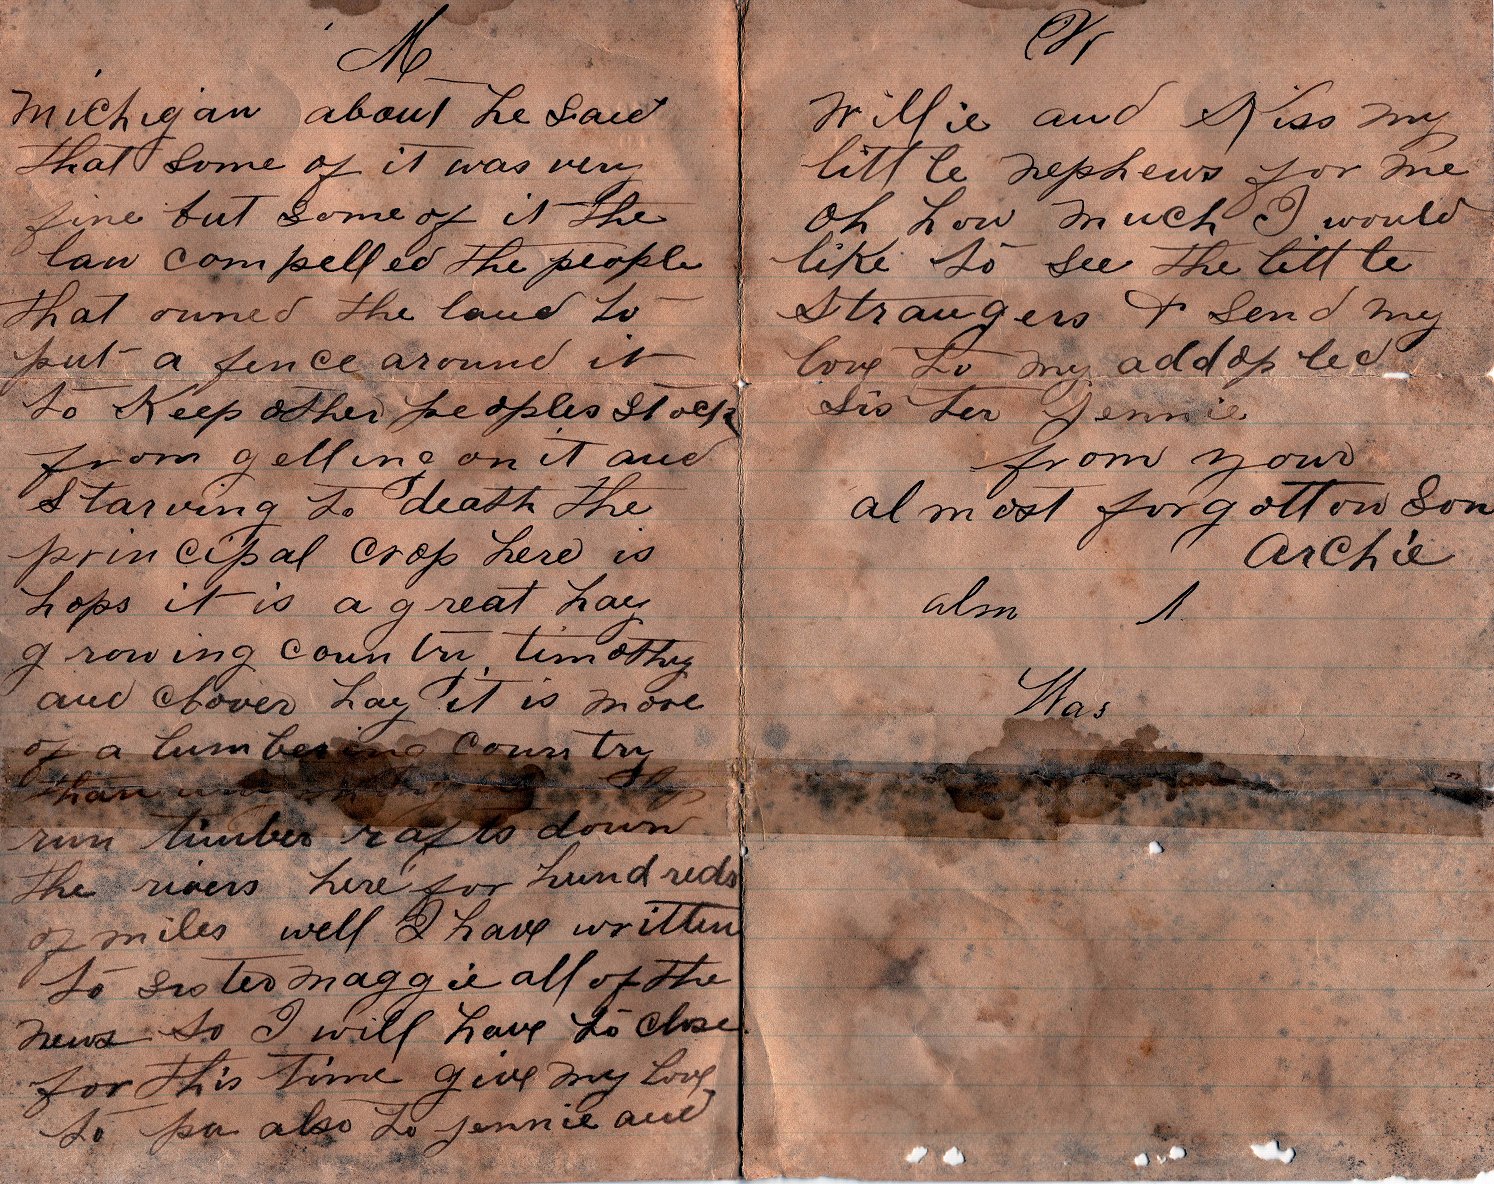 M
Michigan about he said
that some of it was very
fine but some of it the
law compelled the people
that owned the land to
put a fence around it
to Keep other peoples stock
from getting on it and
starving to death the
principal crop here is
hops it is a great hay
growing country, timothy
and clover hay it is more
of a lumbering country
than
run timber rafts down
the rivers here for hundreds
of miles well I have written
to sister maggie all of the
news so I will have to close
for this time give my love
to pa also to jennie and
Willie and Kiss my
little nephews for me
Oh how much I would
like to see the little
Strangers & send my
love to my addopted
sister jennie
from your
almost forgotton son
Archie
alm 1
Was